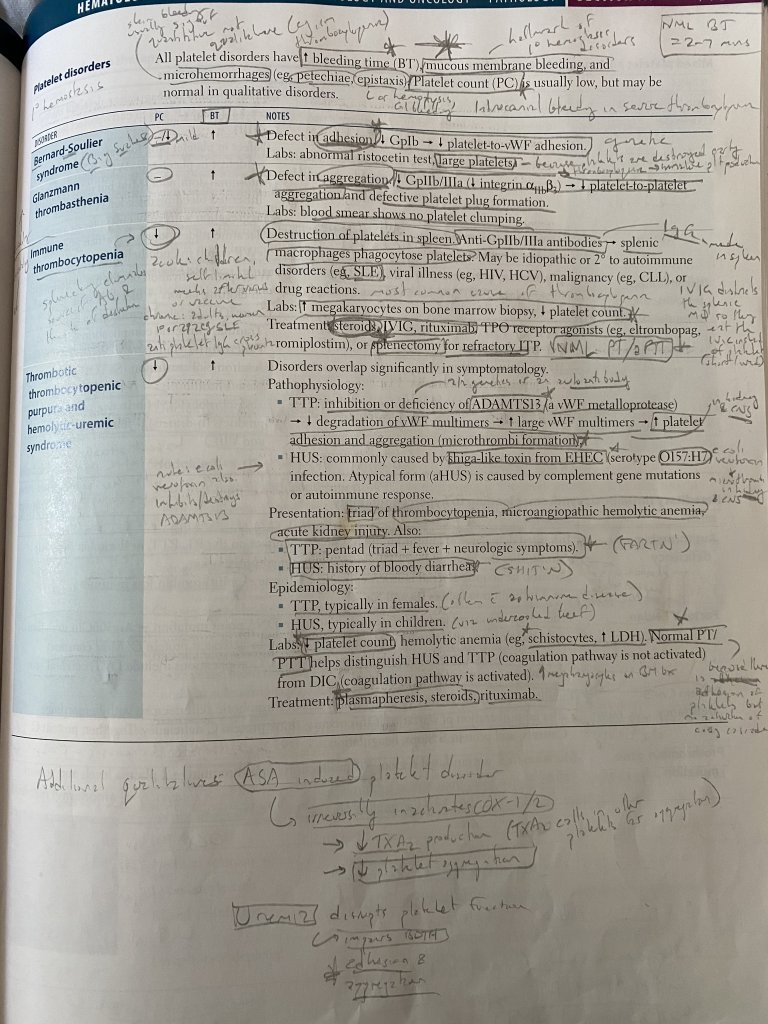 HEMATOL
skin bleeding
usually signif
quantitative not
qualitative (eg in
thrombocytopenia)
hallmark of
1° hemostasis
disorders
NML BT
= 2-7 mins
Platelet disorders
1° hemostasis
All platelet disorders have ↑ bleeding time (BT), mucous membrane bleeding, and
microhemorrhages (eg, petechiae, epistaxis). Platelet count (PC) is usually low, but may be
normal in qualitative disorders.
or hemoptysis
GI bleeding
Intracranial bleeding in severe thrombocytopenia
DISORDER PC BT NOTES
Bernard-Soulier
syndrome (Big Suckers)
–/↓ mild ↑
Defect in adhesion. ↓ GpIb → ↓ platelet-to-vWF adhesion.
genetic
Labs: abnormal ristocetin test, large platelets – because platelets are destroyed early
thrombocytopenia → immature plt production
Glanzmann
thrombasthenia
– ↑
Defect in aggregation. ↓ GpIIb/IIIa (↓ integrin αIIbβ3) → ↓ platelet-to-platelet
aggregation and defective platelet plug formation.
Labs: blood smear shows no platelet clumping.
Immune
thrombocytopenia
↓ ↑
Destruction of platelets in spleen. Anti-GpIIb/IIIa antibodies → splenic
macrophages phagocytose platelets. May be idiopathic or 2° to autoimmune
disorders (eg, SLE), viral illness (eg, HIV, HCV), malignancy (eg, CLL), or
drug reactions. most common cause of thrombocytopenia
Labs: ↑ megakaryocytes on bone marrow biopsy, ↓ platelet count.
Treatment: steroids, IVIG, rituximab, TPO receptor agonists (eg, eltrombopag,
romiplostim), or splenectomy for refractory ITP. NML PT/aPTT
IgG
made
in spleen
IVIG distracts
the splenic
MΦ so they
eat the
IVIG instead
of platelets
(short lived)
acute: children,
self limit
weeks after virus
or vaccine
chronic: adults, women
1° or 2° eg SLE
anti platelet IgG cross placenta
spleen eliminates
source of Ab &
the site of destruction
Thrombotic
thrombocytopenic
purpura and
hemolytic-uremic
syndrome
↓ ↑
Disorders overlap significantly in symptomatology.
Pathophysiology:
2/2 genetics or an autoantibody
▪ TTP: inhibition or deficiency of ADAMTS13 (a vWF metalloprotease)
→ ↓ degradation of vWF multimers → ↑ large vWF multimers → ↑ platelet
adhesion and aggregation (microthrombi formation).
in kidney
& CNS
▪ HUS: commonly caused by Shiga-like toxin from EHEC (serotype O157:H7)
infection. Atypical form (aHUS) is caused by complement gene mutations
or autoimmune response.
e coli
verotoxin
microthrombi
in kidney
& CNS
note: e coli
verotoxin also
inhibits/destroys
ADAMTS13
Presentation: triad of thrombocytopenia, microangiopathic hemolytic anemia,
acute kidney injury. Also:
▪ TTP: pentad (triad + fever + neurologic symptoms). (FARTN')
▪ HUS: history of bloody diarrhea. (SHIT'N)
Epidemiology:
▪ TTP, typically in females. (often c̄ autoimmune disease)
▪ HUS, typically in children. (via undercooked beef)
Labs: ↓ platelet count, hemolytic anemia (eg, schistocytes, ↑ LDH). Normal PT/
PTT helps distinguish HUS and TTP (coagulation pathway is not activated)
from DIC (coagulation pathway is activated). ↑ megakaryocytes on BM bx
Treatment: plasmapheresis, steroids, rituximab.
because there
is
adhesion of
platelets but
no activation of
coag cascade
Additional qualitatives ASA induced platelet disorder
irreversibly inactivates COX-1/2
→ ↓ TXA2 production (TXA2 calls in other
platelets for aggregation)
→ ↓ platelet aggregation
Uremia disrupts platelet function
impairs BOTH
adhesion &
aggregation